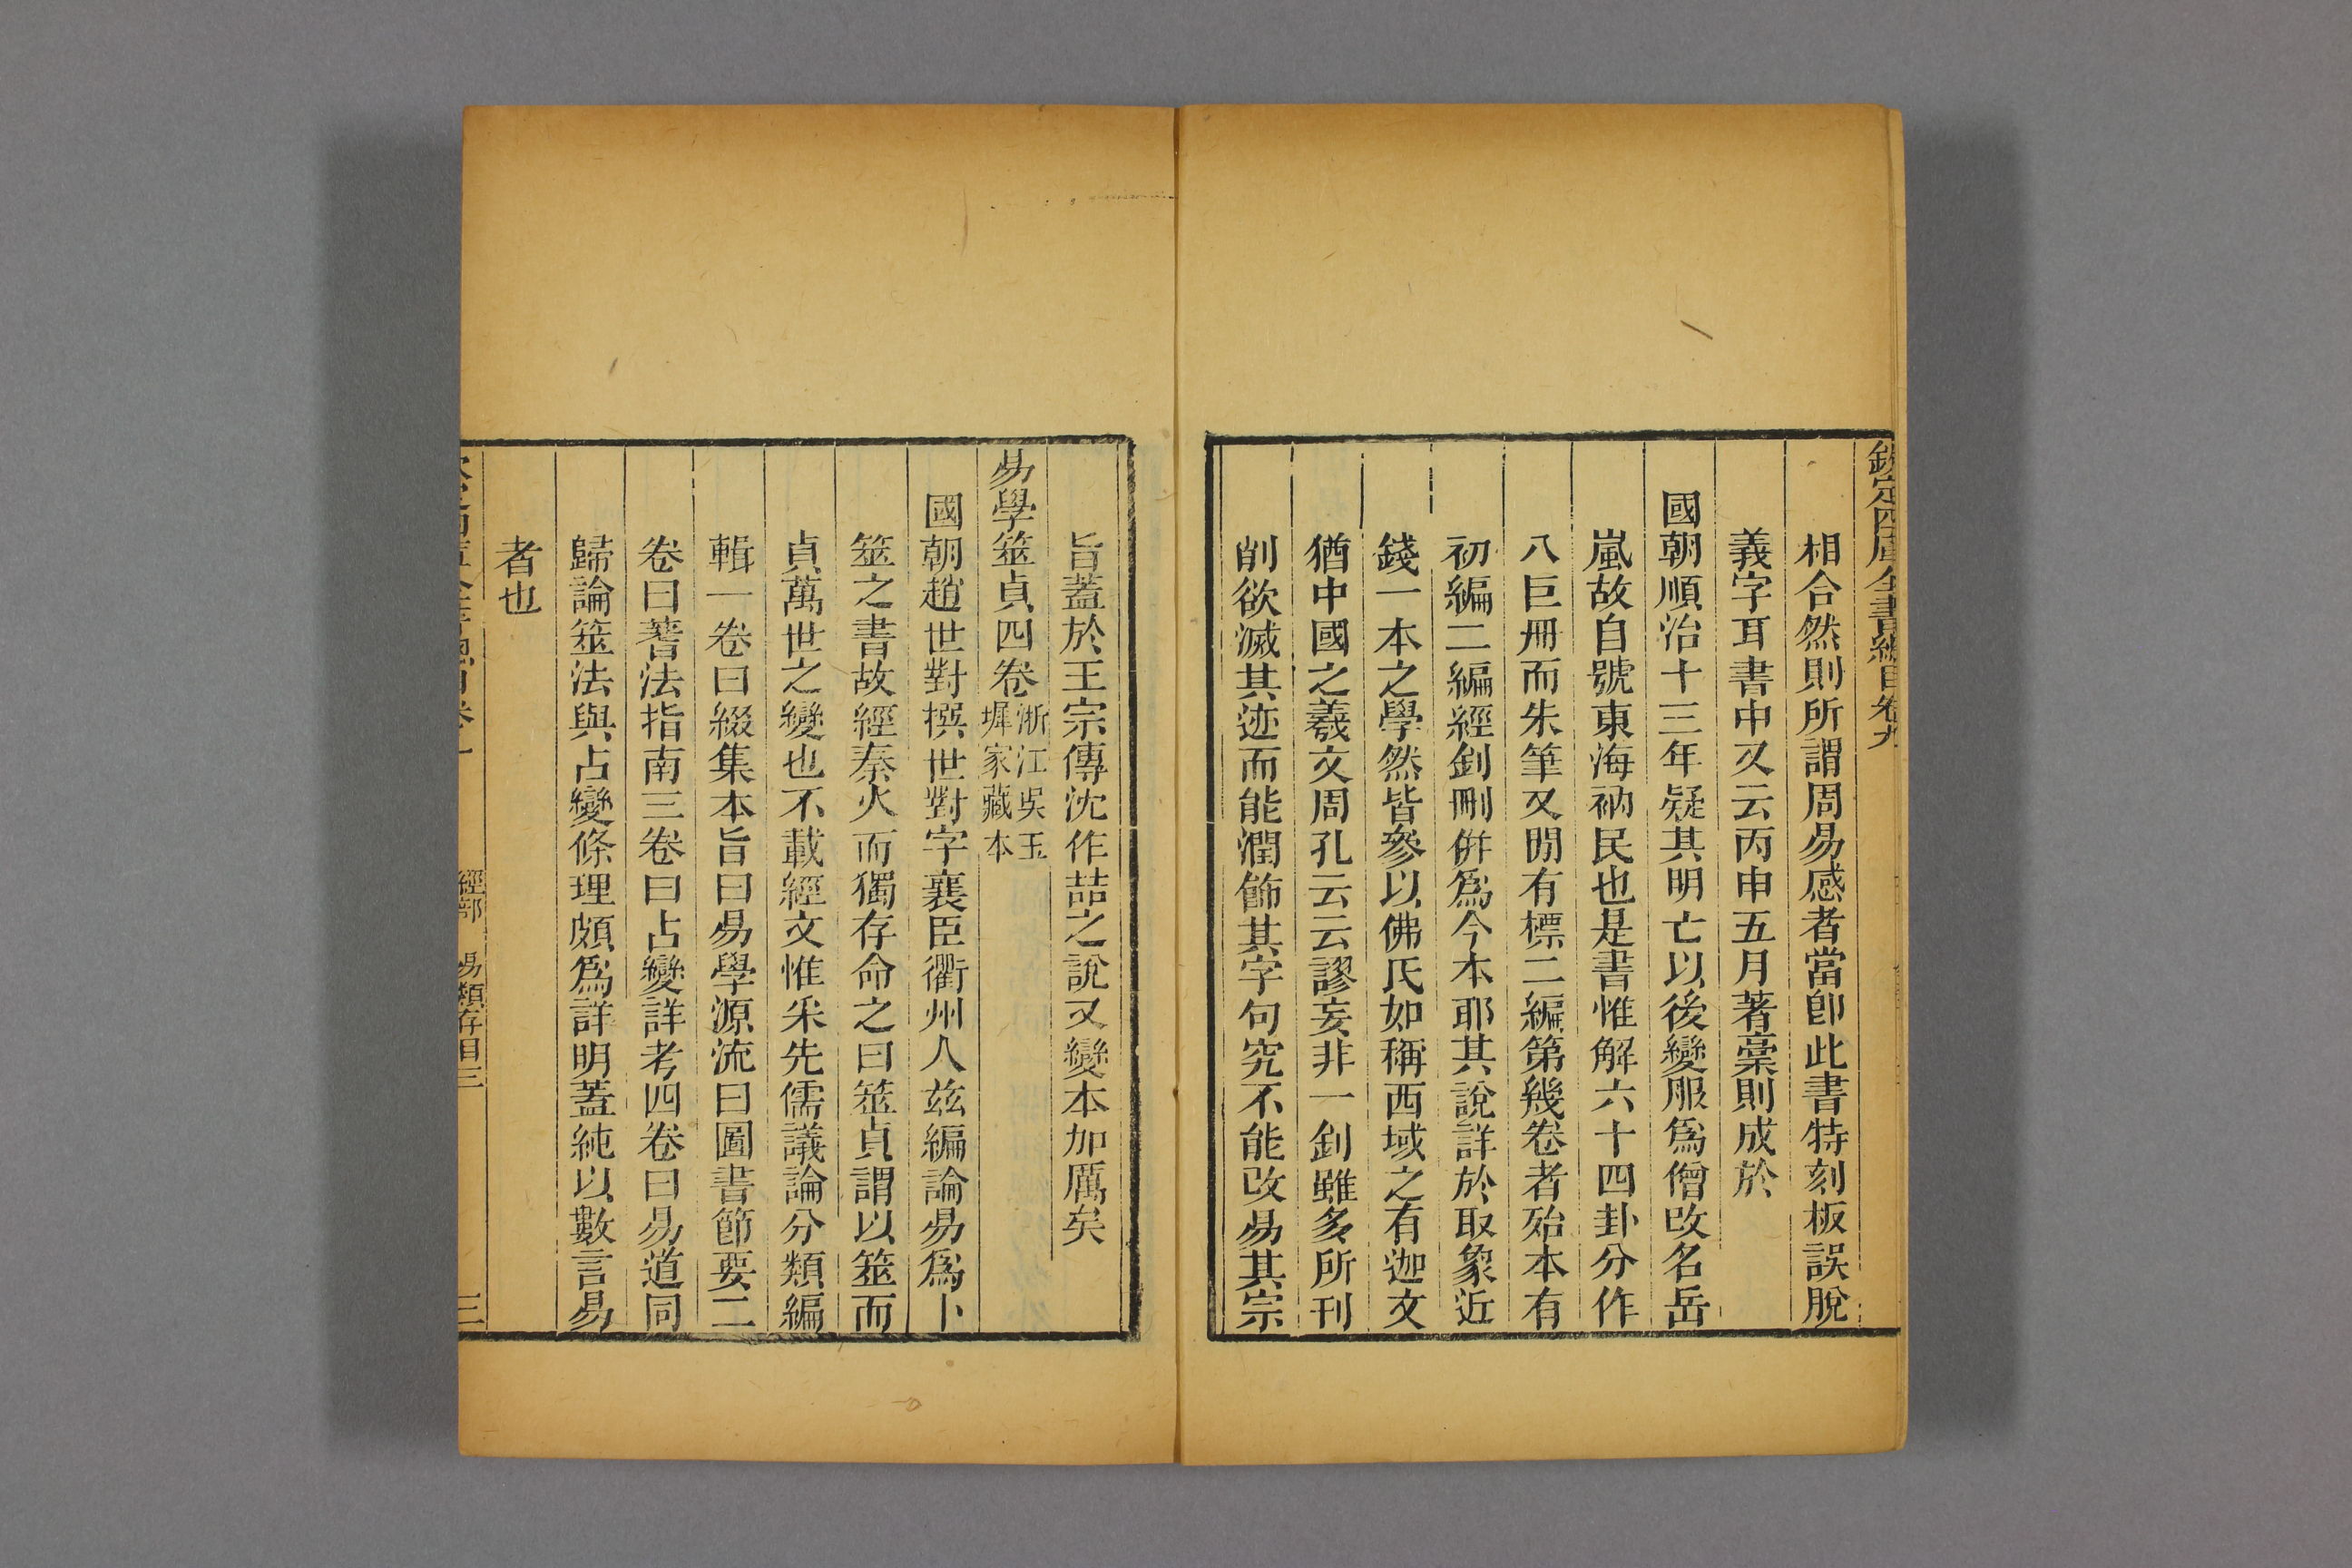 欽定四庫全書總目卷九
相合然則所謂周易感者當卽此書特刻板誤脫
義字耳書中又云丙申五月著稾則成於
國朝順治十三年疑其明亡以後變服爲僧改名岳
嵐故自號東海衲民也是書惟解六十四卦分作
八巨冊而朱筆又閒有標二編第幾卷者殆本有
初編二編經釗刪倂爲今本耶其說詳於取象近
錢一本之學然皆參以佛氏如稱西域之有迦文
猶中國之羲文周孔云云謬妄非一釗雖多所刊
削欲滅其迹而能潤飾其字句究不能改易其宗
旨蓋於王宗傳沈作喆之說又變本加厲矣
易學筮貞四卷 浙江吳玉
墀家藏本
國朝趙世對撰世對字襄臣衢州人玆編論易爲卜
筮之書故經秦火而獨存命之曰筮貞謂以筮而
貞萬世之變也不載經文惟采先儒議論分類編
輯一卷曰綴集本旨曰易學源流曰圖書節要二
卷曰蓍法指南三卷曰占變詳考四卷曰易道同
歸論筮法與占變條理頗爲詳明蓋純以數言易
者也
經部 易類存目三
三